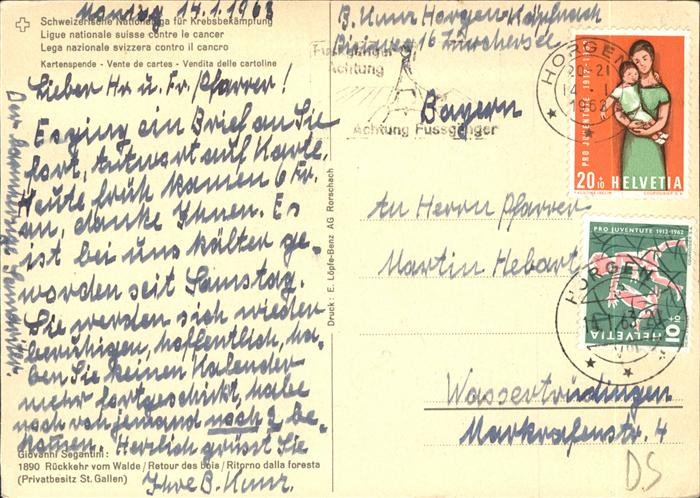 Montag 14.1.1963
Schweizerische Nationalliga für Krebsbekämpfung
Ligue nationale suisse contre le cancer
Lega nazionale svizzera contro il cancro
Kartenspende - Vente de cartes - Vendita delle cartoline
Lieber Hr u. Fr. Pfarrer!
Es ging ein Brief an Sie
fort, Antwort auf Karte.
Heute früh kamen 6 Fr.
an, danke Ihnen. Es
ist bei uns kälter ge-
worden seit Samstag.
Sie werden sich wieder
beruhigen, hoffentlich, ha-
ben Sie keinen Kalender
mehr fortgeschickt, habe
noch von jemand noch 2 be-
kommen. Herzlich grüsst Sie
Ihre B. Kunz.
Giovanni Segantini:
1890 Rückkehr vom Walde / Retour des bois / Ritorno dalla foresta
(Privatbesitz St. Gallen)
Der barmherzige Samariter.
Druck: E. Löpfe-Benz AG Rorschach
B. Kunz Horgen-Käpfnach
16 Zürchersee
Fussgänger
Achtung
Achtung Fussgänger
HORGEN
20-21
14.-1
1963
PRO JUVENTUTE 1912-1962
20+10 HELVETIA
Bayern
An Herrn Pfarrer
Martin Hebart
PRO JUVENTUTE 1912-1962
HORGEN
10+10
HELVETIA
Wassertrüdingen
Markgrafenstr. 4
DS